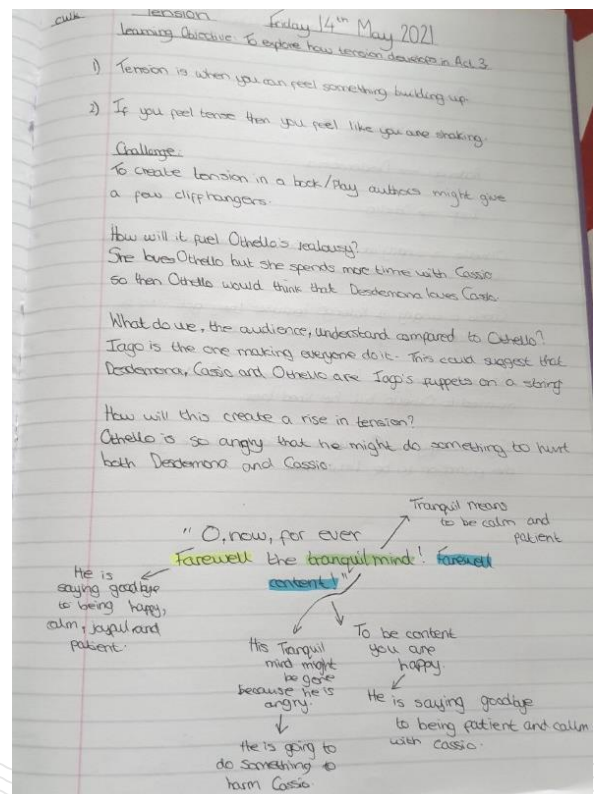 cwk Tension Friday 14th May 2021
Learning Objective: To explore how tension develops in Act 3
1) Tension is when you can feel something building up.
2) If you feel tense then you feel like you are shaking.
Challenge:
To create tension in a book/Play authors might give
a few cliffhangers.
How will it fuel Othello's jealousy?
She loves Othello but she spends more time with Cassio
so then Othello would think that Desdemona loves Cassio
What do we, the audience, understand compared to Othello?
Iago is the one making everyone do it. This could suggest that
Desdemona, Cassio and Othello are Iago's puppets on a string
How will this create a rise in tension?
Othello is so angry that he might do something to hurt
both Desdemona and Cassio.
Tranquil means
to be calm and
patient
"O, now, for ever
Farewell the tranquil mind! Farewell
content!"
He is
saying goodbye
to being happy,
calm, joyful and
patient.
His Tranquil
mind might
be gone
because he is
angry.
He is going to
do something to
harm Cassio.
To be content
you are
happy.
He is saying goodbye
to being patient and callm
with cassio.